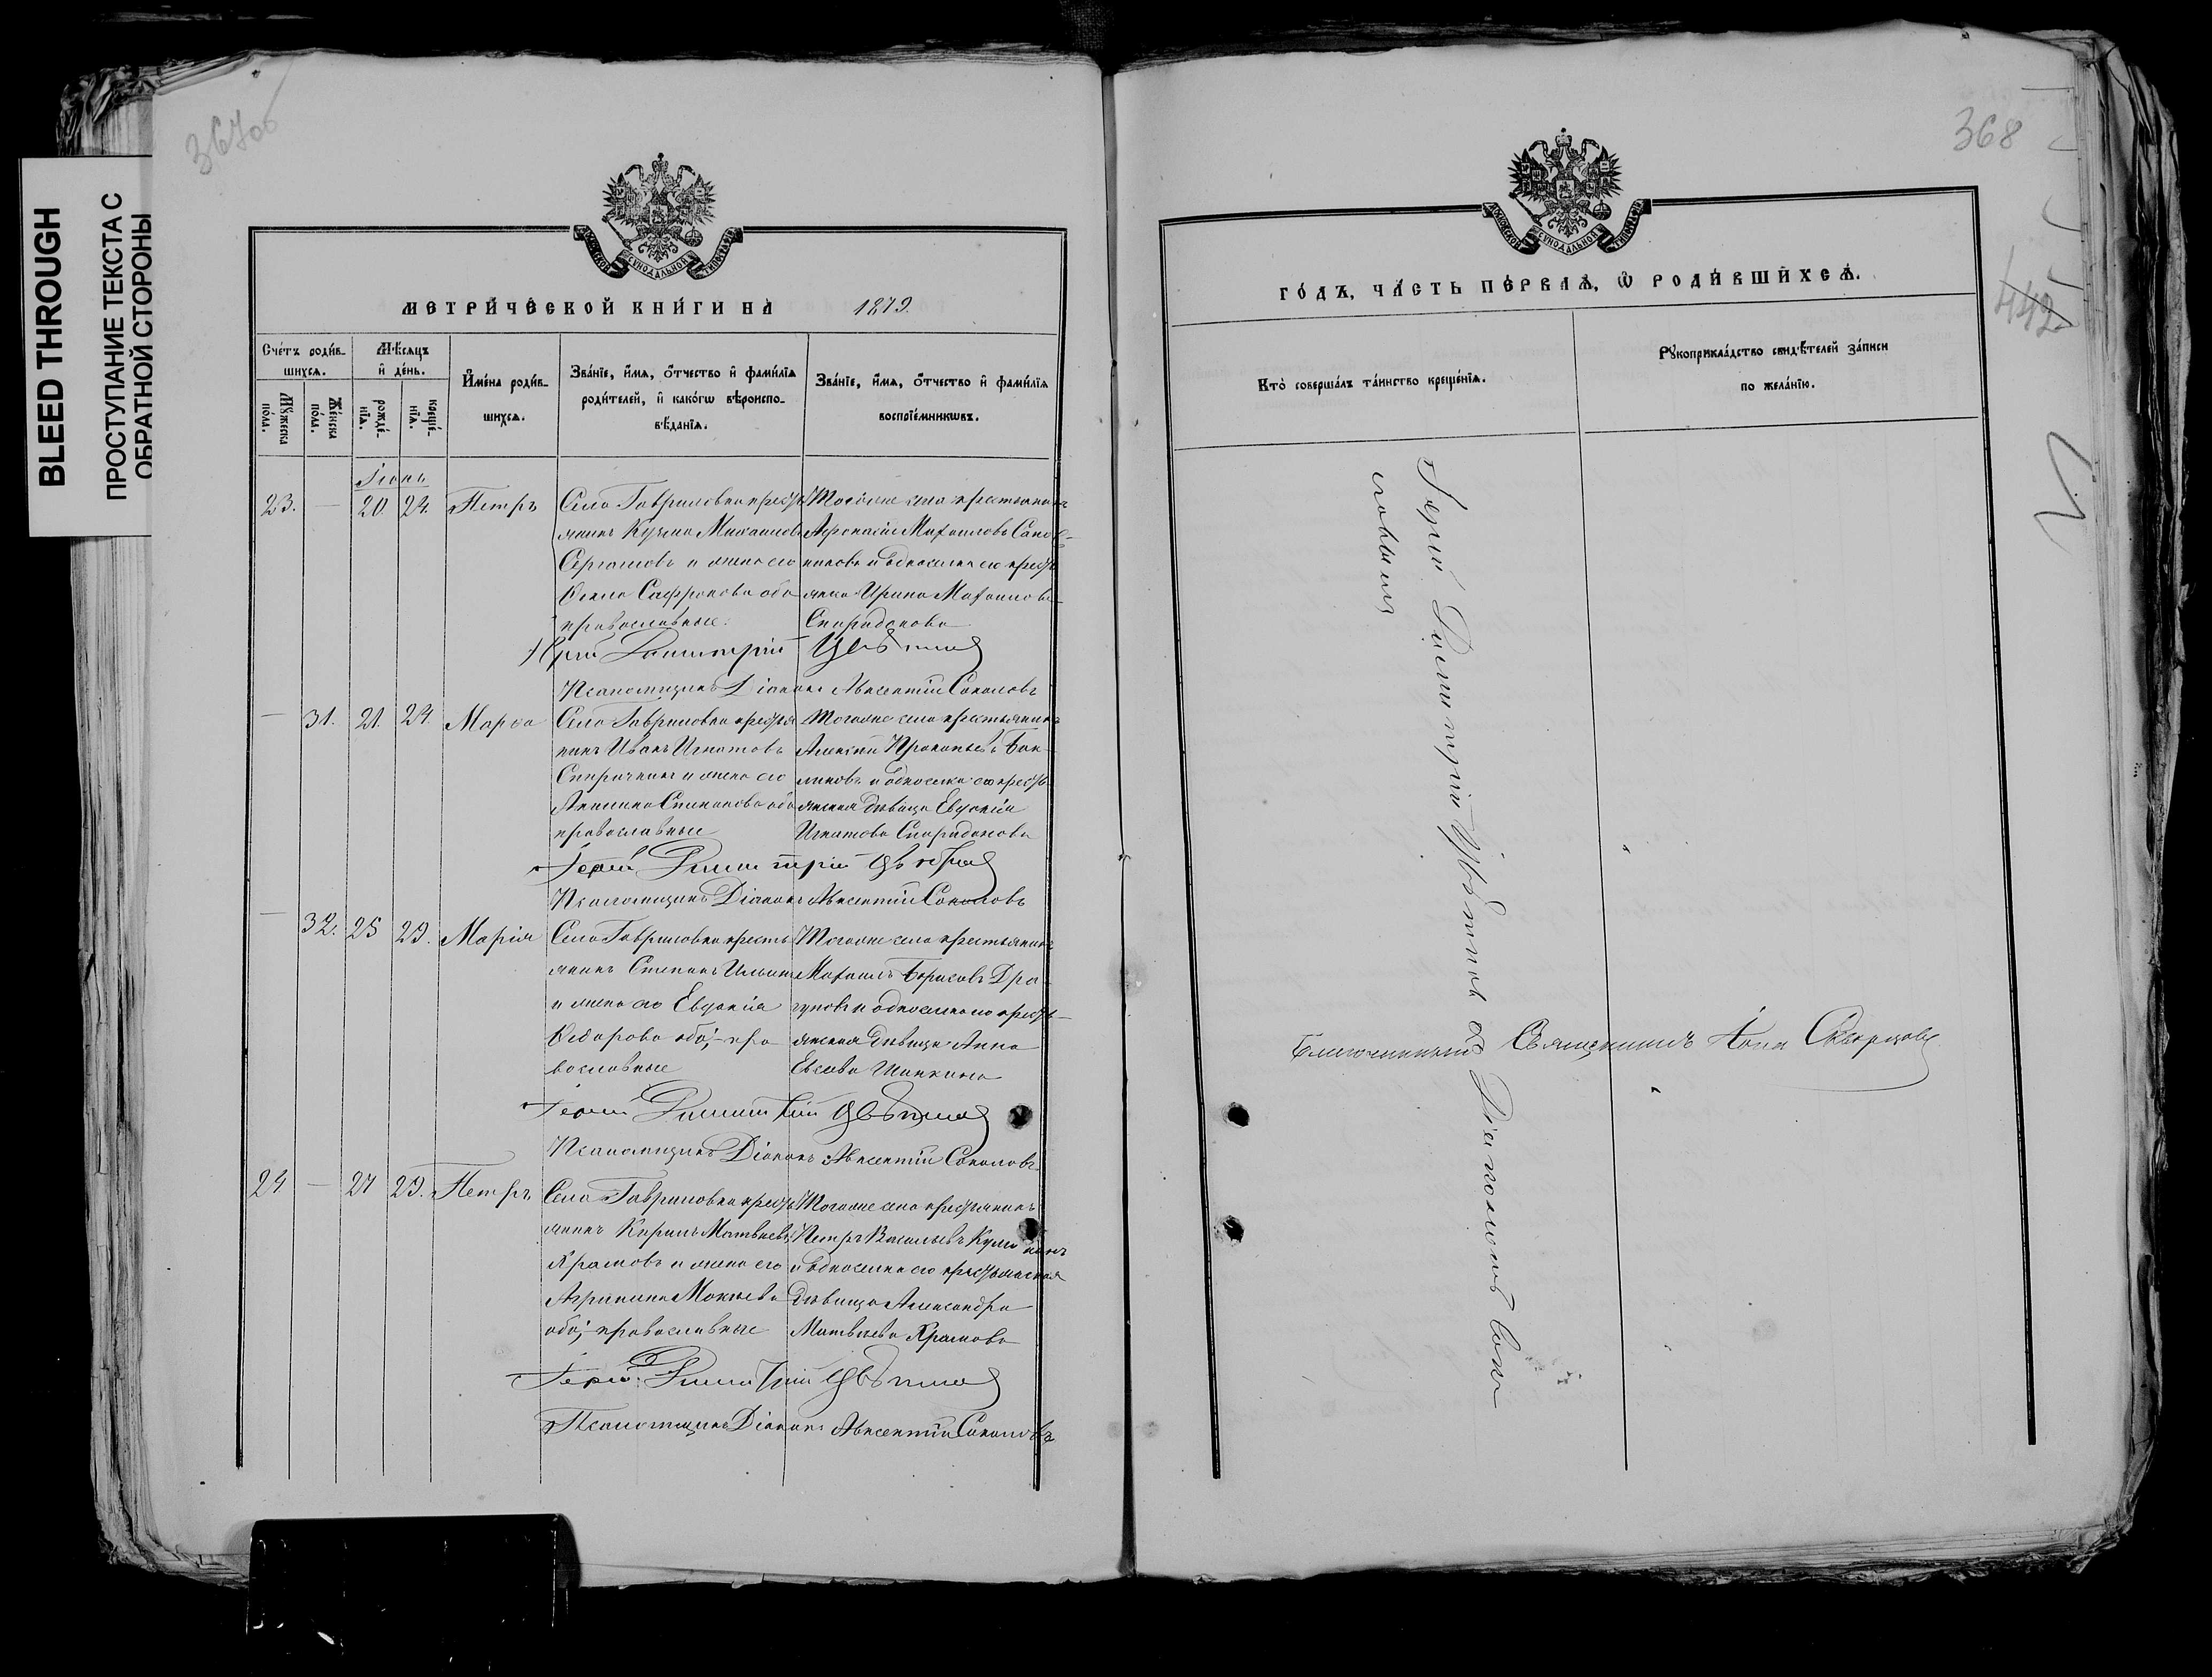 BLEED THROUGH
ПРОСТУПАНИЕ ТЕКСТА С
ОБРАТНОЙ СТОРОНЫ
367об
МОСКОВСКОЙ СУНОДАЛЬНОЙ ТИПОГРАФІИ
МЕТРИ́ЧЕСКОЙ КНИ́ГИ НА 1879.
Сче́тъ роди́в-
шихсѧ.
Мꙋ́жеска
по́ла.
Же́нска
пола.
Мѣ́сяцъ
и де́нь.
рожде́-
нїѧ.
креще́-
нїѧ.
Имена роди́в-
шихсѧ.
Зва́нїе, и́мѧ, о́тчество и фами́лїѧ
роди́телей, и како́гѡ вѣроиспо-
вѣ́данїѧ.
Зва́нїе, и́мѧ, о́тчество и фами́лїѧ
воспрїе́мникѡвъ.
Іюнь
23. — 20. 24. Петръ
Село Гавриловка кресть
янинъ Кузма Михаиловъ
и жена его
Сафронова оба
православные.
Тогоже села крестьянинъ
Афонасій Михаиловъ
и односелка его кресть
янка Ирина Михаилова
Спиридонова
Іерей Димитрій Цвѣтков
Псаломщикъ Діаконъ Авксентій Соколовъ
— 31. 21. 24. Марѳа
Село Гавриловка крестья
нинъ Иванъ Игнатовъ
и жена его
Акилина Степанова оба
православные
Тогоже села крестьянинъ
Алексій Прокопьевъ
и односелка его кресть
янская дѣвица Евдокія
Игнатова Спиридонова
Іерей Димитрій Цвѣтков
Псаломщикъ Діаконъ Авксентій Соколовъ
— 32. 25 29. Марія
Село Гавриловка кресть
янинъ Степанъ Ильинъ
и жена его Евдокія
Ѳедорова оба, пра
вославные
Тогоже села крестьянинъ
Михаилъ Борисовъ Дра
гуновъ и односелка его кресть
янская дѣвица Анна
Евсева
Іерей Димитрій Цвѣтков
Псаломщикъ Діаконъ Авксентій Соколовъ
24 — 27 29. Петръ
Село Гавриловка кресть
янинъ Кирилъ Матвѣевъ
Храмовъ и жена его
Агрипина Мокеева
оба, православные
Тогоже села крестьянинъ
Петръ Васильевъ
и односелка его крестьянская
дѣвица Александра
Матвѣева Храмова
Іерей Димитрій Цвѣтков
Псаломщикъ Діаконъ Авксентій Соколовъ
368
442
МОСКОВСКОЙ СУНОДАЛЬНОЙ ТИПОГРАФІИ
ГО́ДЪ, ЧА́СТЬ ПЕ́РВАѦ, Ѡ РОДИ́ВШИХСѦ.
Кто̀ соверша́лъ та́инство креще́нїѧ.
Рꙋкоприкла́дство свидѣ́телей за́писи
по жела́нїю.
Іерей Димитрій Цвѣтков со Діакономъ Соко
ловымъ
Благочинный Священникъ Скворцовъ